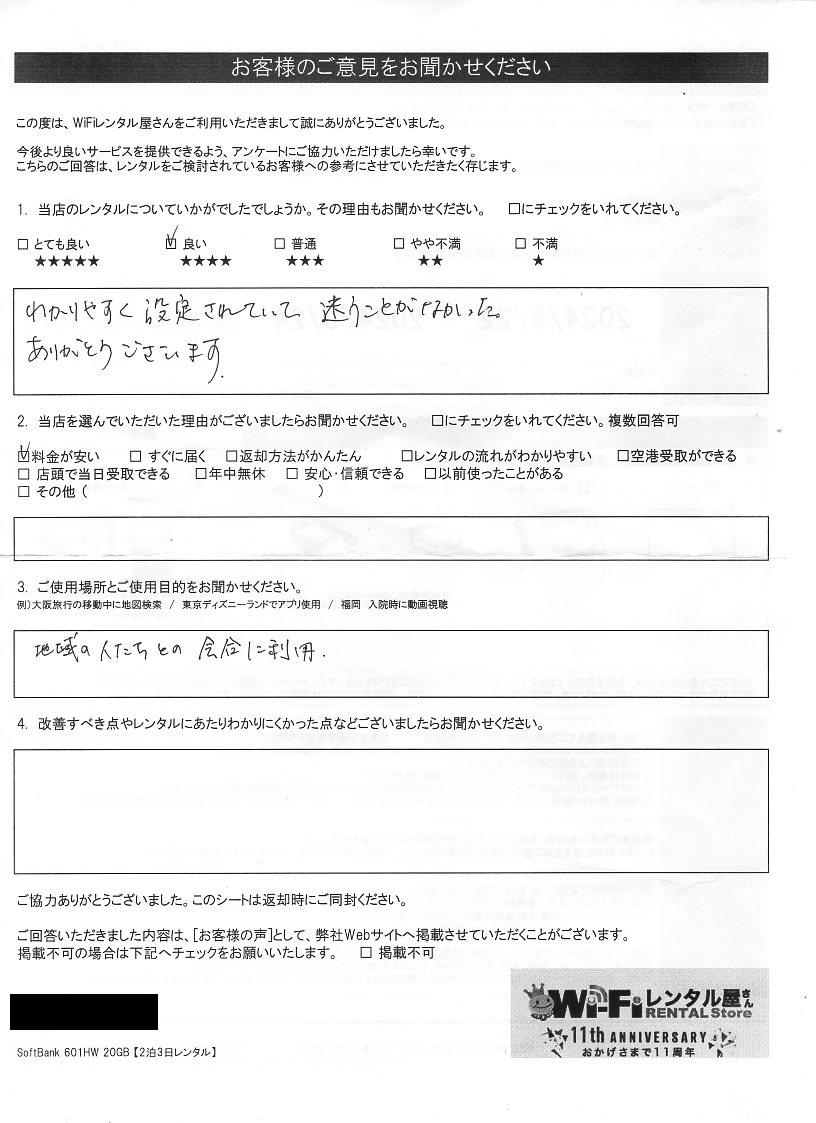 お客様のご意見をお聞かせください
この度は、WiFiレンタル屋さんをご利用いただきまして誠にありがとうございました。
今後より良いサービスを提供できるよう、アンケートにご協力いただけましたら幸いです。
こちらのご回答は、レンタルをご検討されているお客様への参考にさせていただきたく存じます。
1. 当店のレンタルについていかがでしたでしょうか。その理由もお聞かせください。 □にチェックをいれてください。
□ とても良い ☑ 良い □ 普通 □ やや不満 □ 不満
★★★★★ ★★★★ ★★★ ★★ ★
わかりやすく設定されていて、迷うことがなかった。
ありがとうございます.
2. 当店を選んでいただいた理由がございましたらお聞かせください。 □にチェックをいれてください。複数回答可
☑料金が安い □ すぐに届く □返却方法がかんたん □レンタルの流れがわかりやすい □空港受取ができる
□ 店頭で当日受取できる □年中無休 □ 安心・信頼できる □以前使ったことがある
□ その他 ( )
3. ご使用場所とご使用目的をお聞かせください。
例)大阪旅行の移動中に地図検索 / 東京ディズニーランドでアプリ使用 / 福岡 入院時に動画視聴
地域の人たちとの会合に利用.
4. 改善すべき点やレンタルにあたりわかりにくかった点などございましたらお聞かせください。
ご協力ありがとうございました。このシートは返却時にご同封ください。
ご回答いただきました内容は、[お客様の声]として、弊社Webサイトへ掲載させていただくことがございます。
掲載不可の場合は下記へチェックをお願いいたします。 □ 掲載不可
Wi-Fiレンタル屋さん
RENTAL Store
11th ANNIVERSARY
おかげさまで11周年
SoftBank 601HW 20GB【2泊3日レンタル】